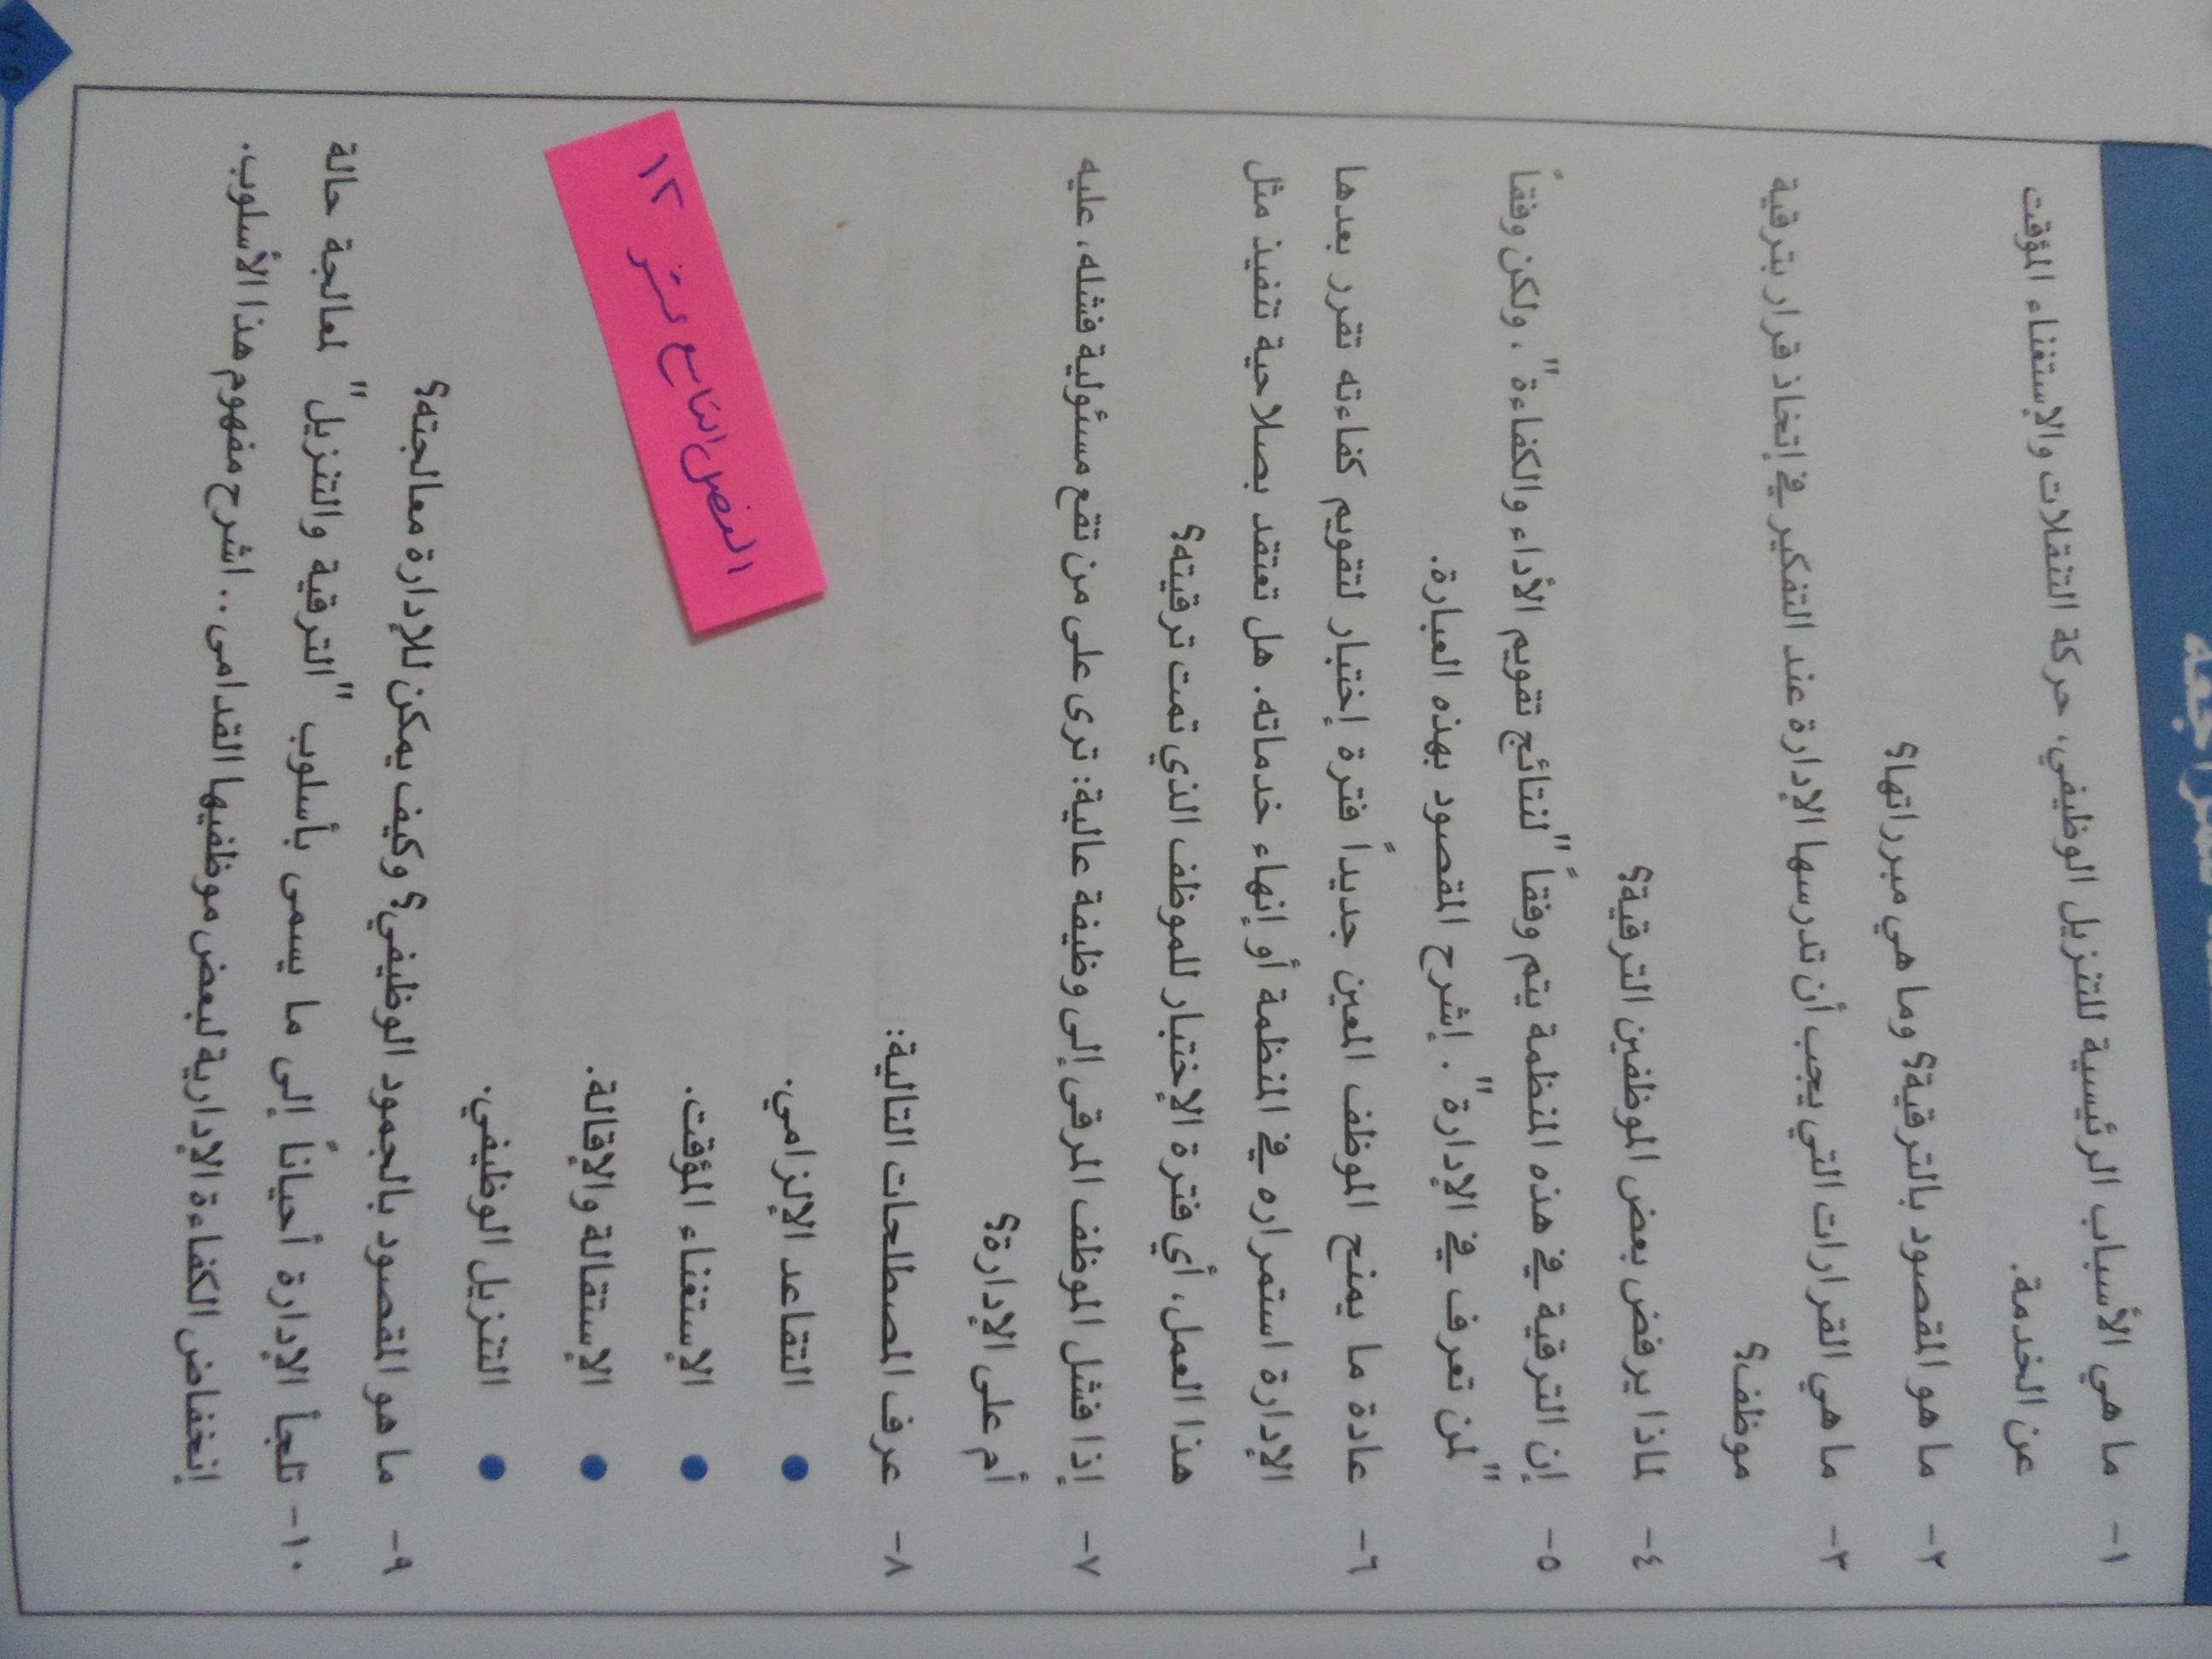 ١- ما هي الأسباب الرئيسية للتنزيل الوظيفي، حركة التنقلات والإستغناء المؤقت
عن الخدمة.
٢- ما هو المقصود بالترقية؟ وما هي مبرراتها؟
٣- ما هي القرارات التي يجب أن تدرسها الإدارة عند التفكير في إتخاذ قرار بترقية
موظف؟
٤- لماذا يرفض بعض الموظفين الترقية؟
٥- إن الترقية في هذه المنظمة يتم وفقاً "لنتائج تقويم الأداء والكفاءة"، ولكن وفقاً
"لمن تعرف في الإدارة". إشرح المقصود بهذه العبارة.
٦- عادة ما يمنح الموظف المعين جديداً فترة إختبار لتقويم كفاءته تقرر بعدها
الإدارة استمراره في المنظمة أو إنهاء خدماته. هل تعتقد بصلاحية تنفيذ مثل
هذا العمل، أي فترة الإختبار للموظف الذي تمت ترقيته؟
٧- إذا فشل الموظف المرقى إلى وظيفة عالية: ترى على من تقع مسئولية فشله، عليه
أم على الإدارة؟
٨- عرف المصطلحات التالية:
● التقاعد الإلزامي.
● الإستغناء المؤقت.
● الإستقالة والإقالة.
● التنزيل الوظيفي.
٩- ما هو المقصود بالجمود الوظيفي؟ وكيف يمكن للإدارة معالجته؟
١٠- تلجأ الإدارة أحياناً إلى ما يسمى بأسلوب "الترقية والتنزيل" لمعالجة حالة
إنخفاض الكفاءة الإدارية لبعض موظفيها القدامى.. اشرح مفهوم هذا الأسلوب.
الفصل التاسع عشر ١٢
٧٠٥